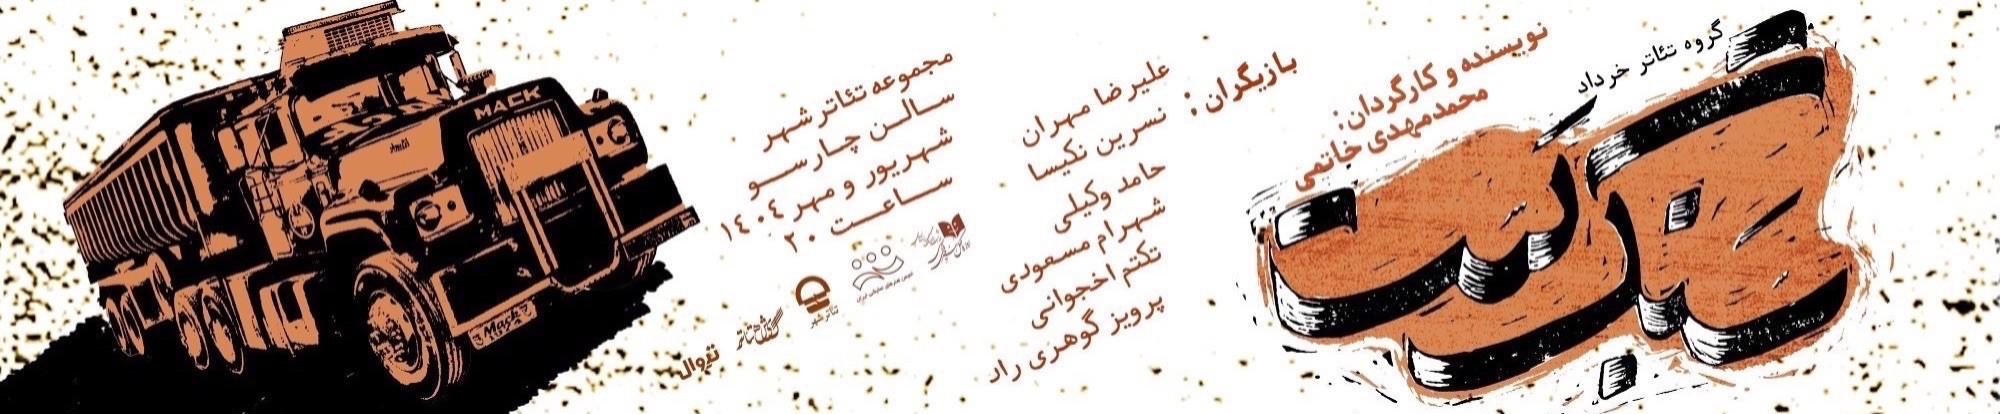 گروه تئاتر خرداد
نویسنده و کارگردان:
محمدمهدی خاتمی
بازیگران:
علیرضا مهران
نسرین نکیسا
حامد وکیلی
شهرام مسعودی
تکتم اخجوانی
پرویز گوهری راد
مجموعه تئاتر شهر
سالن چارسو
شهریور و مهر ۱۴۰۴
ساعت ۲۰
تئاتر شهر
تیوال
MACK
Mack